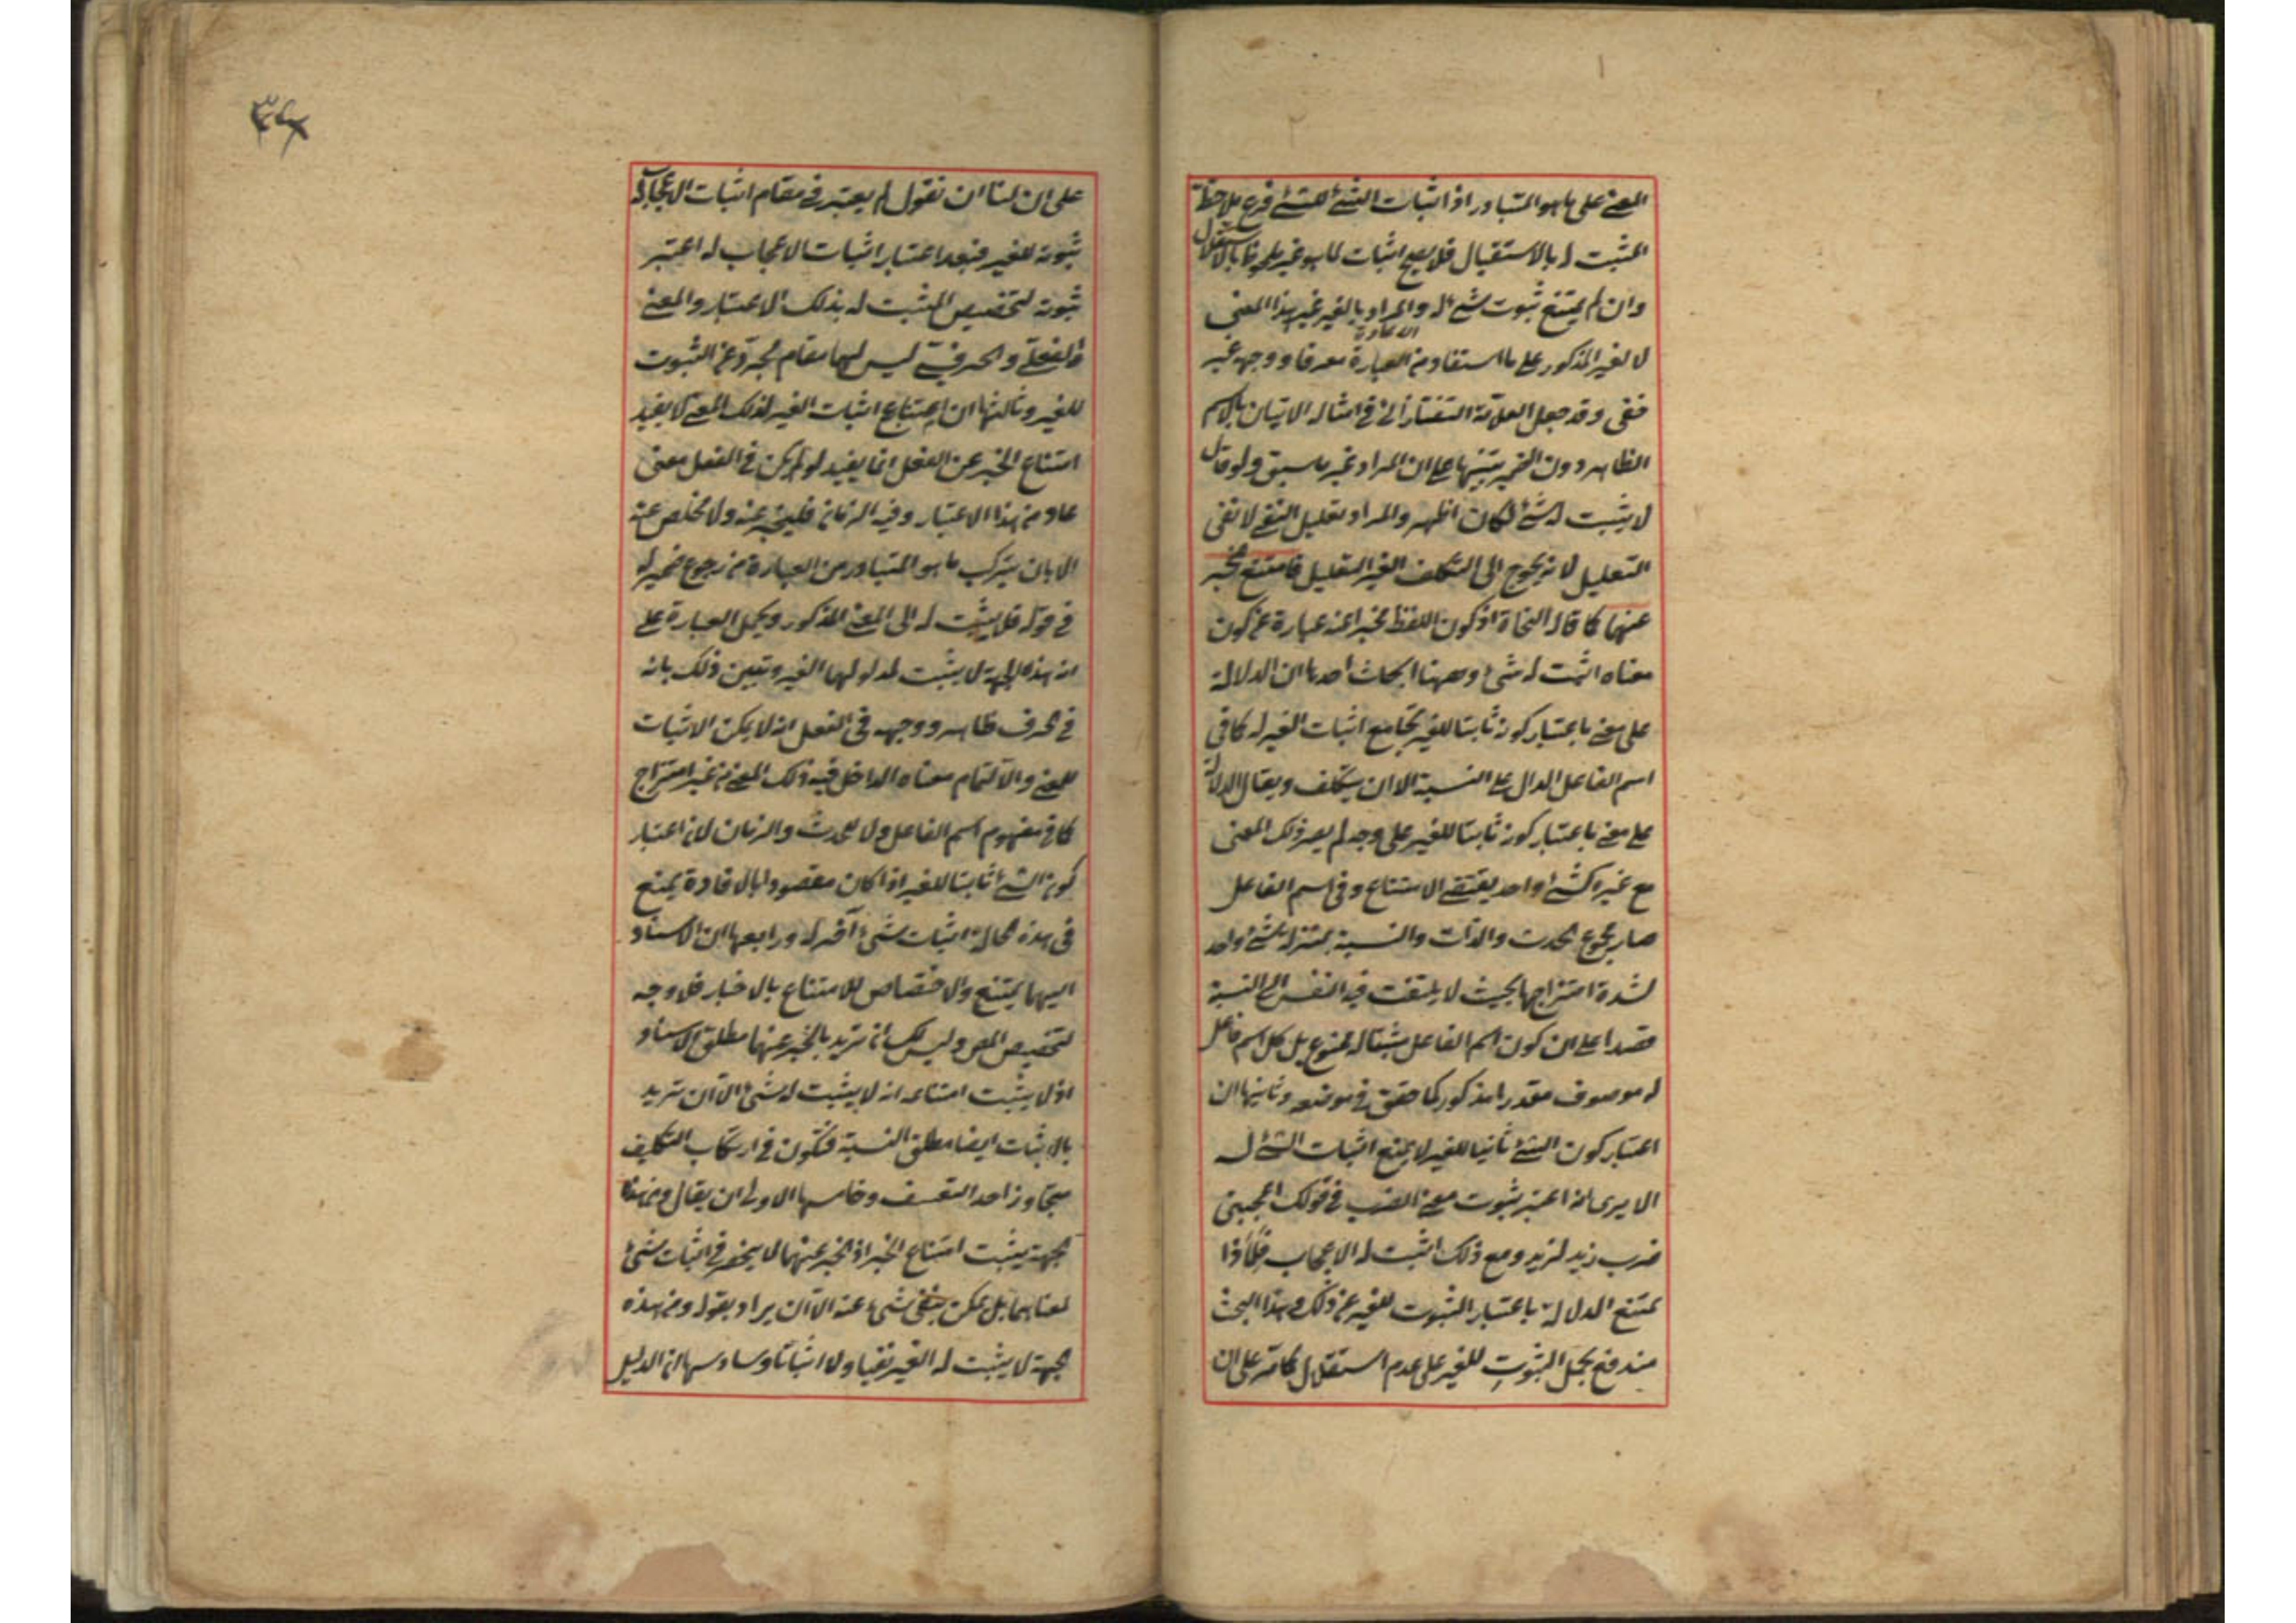 المعنى على ما هو المتبادر اذ اثبات الشئ للشئ فرع ملاحظة
المثبت له بالاستقبال فلا يصح اثبات لما هو غير ملحوظ بالاستقلال
وان لم يمتنع ثبوت شئ له والمراد بالغير غير هذا المعنى
لا لغير المذكور على ما استفاد من العبارة معرفا ووجهه غير
خفى وقد جعل العلامة التفتازانى فى امثاله الاتيان بالاسم
الظاهر دون الضمير تنبيها على ان المراد غير ما سبق ولو قال
لا يثبت له شئ لكان اظهر والمراد تعليل النفى لا نفى
التعليل لانه يحوج الى التكلف الغير القليل فامتنع الخبر
عنهما كما قاله النحاة اذ كون اللفظ مخبرا عنه عبارة عن كون
معناه اثبت له شئ وههنا ابحاث احدها ان الدلالة
على معنى باعتبار كونه ثابتا للغير تجامع اثبات الغير له كما فى
اسم الفاعل الدال على النسبة الا ان يتكلف ويقال الدلالة
على معنى باعتبار كونه ثابتا للغير على وجه لم يصر ذلك المعنى
مع غيره كشئ واحد يقتضى الامتناع وفى اسم الفاعل
صار مجموع الحدث والذات والنسبة بمنزلة شئ واحد
لشدة امتزاجها بحيث لا يلتفت فيه النفس الى النسبة
قصدا على ان كون اسم الفاعل مثبتا له ممنوع بل كل اسم فاعل
له موصوف مقدر او مذكور كما حقق فى موضعه وثانيها ان
اعتبار كون الشئ ثابتا للغير لا يمنع اثبات الشئ له
الا يرى انه اعتبر ثبوت معنى الضرب فى قولك اعجبنى
ضرب زيد لزيد ومع ذلك اثبت له الاعجاب فلماذا
يمتنع الدلالة باعتبار الثبوت للغير عن ذلك وهذا البحث
مندفع بحمل الثبوت للغير على عدم استقلال كما مر على ان
٣٤
على ان لنا ان نقول لم يعتبر فى مقام اثبات الاعجاب له
ثبوته للغير فبعد اعتبار اثبات الاعجاب له اعتبر
ثبوته لتخصيص المثبت له بذلك الاعتبار والمعنى
الفعلى والحرفى ليس لهما مقام مجرد عن الثبوت
للغير وثالثها ان امتناع اثبات الغير لذلك المعنى لا يفيد
امتناع الخبر عن الفعل انما يفيد لو لم يكن فى الفعل معنى
عاد من هذا الاعتبار وفيه الزمان فليخبر عنه ولا مخلص عنه
الا بان يترك ما هو المتبادر من العبارة من رجوع ضمير له
فى قوله فلا يثبت له الى المعنى المذكور ويحمل العبارة على
انه بهذه الجهة لا يثبت لمدلولهما الغير وتبين ذلك بانه
فى الحرف ظاهر ووجهه فى الفعل انه لا يمكن الاثبات
للمعنى والا لتمام معناه الداخل فيه ذلك المعنى من غير امتزاج
كما فى مفهوم اسم الفاعل ولا للحدث والزمان لان اعتبار
كون الشئ ثابتا للغير اذا كان مقصودا بالافادة يمنع
فى هذه الحالة اثبات شئ آخر له ورابعها ان الاسناد
اليهما يمتنع ولا اختصاص للامتناع بالاخبار فلا وجه
لتخصيص المص وليس لك ان تريد بالخبر عنهما مطلق الاسناد
اذ لا يثبت امتناعه انه لا يثبت له شئ الا ان تريد
بالاثبات ايضا مطلق النسبة فتكون فى ارتكاب التكليف
متجاوزا حد التعسف وخامسها الاولى ان يقال ومن هذا
الجهة يثبت امتناع الخبر اذ الخبر عنهما لا ينحصر فى اثبات شئ
لمعناهما بل يمكن بنفى شئ عنه الا ان يراد بقوله ومن هذه
الجهة لا يثبت له الغير نفيا ولا اثباتا وسادسها ان الدليل